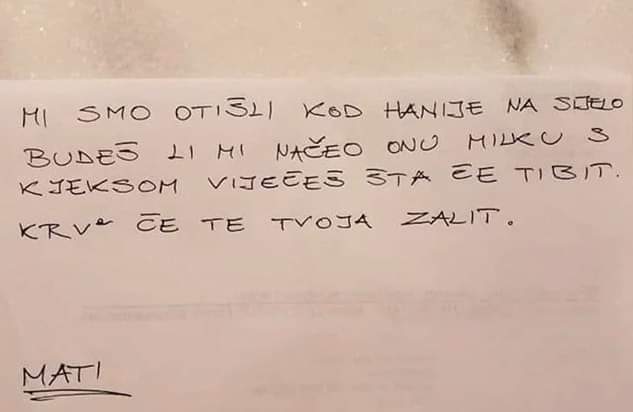 MI SMO OTIŠLI KOD HANIJE NA SIJELO
BUDEŠ LI MI NAČEO ONU MILKU S
KJEKSOM VIJEČEŠ ŠTA ČE TIBIT.
KRV ČE TE TVOJA ZALIT.
MATI